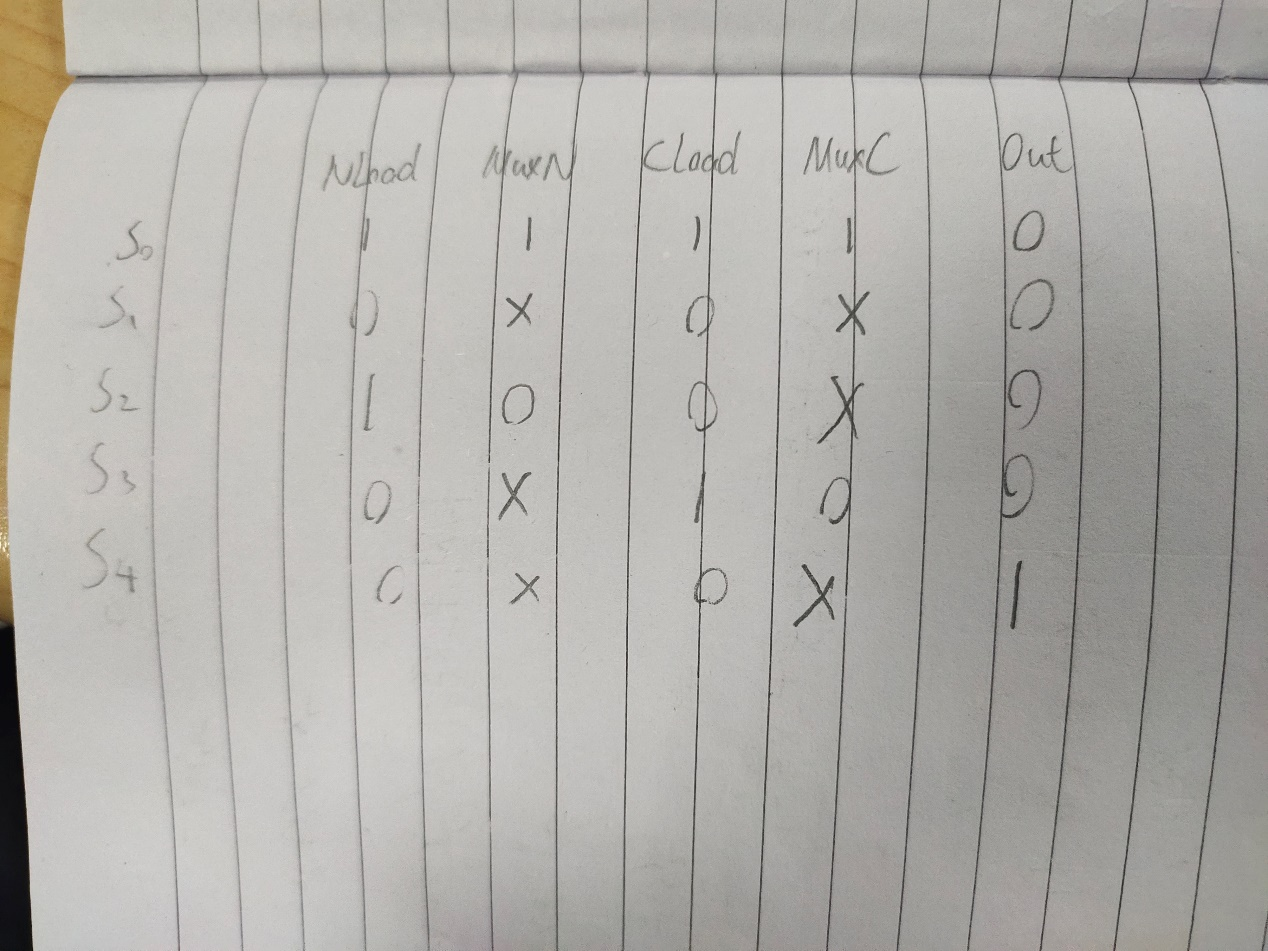 NLoad MuxN CLoad MuxC Out
S0 1 1 1 1 0
S1 0 X 0 X 0
S2 1 0 0 X 0
S3 0 X 1 0 0
S4 0 X 0 X 1